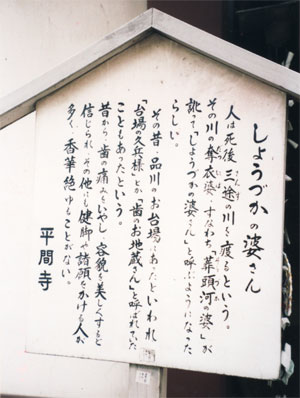 しょうづかの婆さん
人は死後、三途の川を渡るという。
その川の奪衣婆、すなわち「葬頭河の婆」が
訛って「しょうづかの婆さん」と呼ぶようになった
らしい。
その昔、品川のお台場にあったといわれ
「台場の久兵様」とか「歯のお地蔵さん」と呼ばれていた
こともあったという。
昔から歯の痛みをいやし、容貌を美しくすると
信じられ、その他にも健脚や諸願をかける人が
多く、香華絶ゆることがない。
平間寺